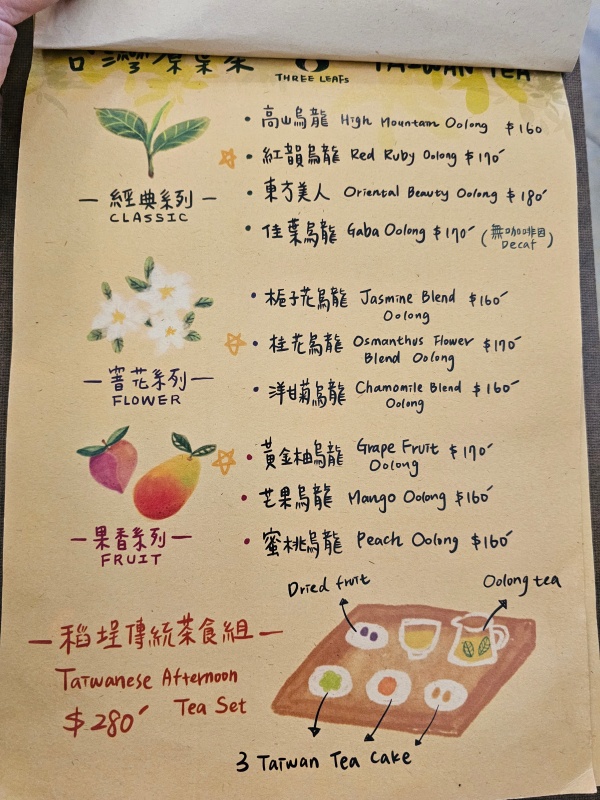 台灣原葉茶 TAIWAN TEA
THREE LEAFS
• 高山烏龍 High Mountain Oolong $160
☆ • 紅韻烏龍 Red Ruby Oolong $170
• 東方美人 Oriental Beauty Oolong $180
• 佳葉烏龍 Gaba Oolong $170 (無咖啡因
Decaf)
— 經典系列 —
CLASSIC
• 梔子花烏龍 Jasmine Blend $160
Oolong
☆ • 桂花烏龍 Osmanthus Flower $170
Blend Oolong
• 洋甘菊烏龍 Chamomile Blend $160
Oolong
— 窨花系列 —
FLOWER
☆ • 黃金柚烏龍 Grape Fruit $170
Oolong
• 芒果烏龍 Mango Oolong $160
• 蜜桃烏龍 Peach Oolong $160
— 果香系列 —
FRUIT
Dried fruit
Oolong tea
— 稻埕傳統茶食組 —
Taiwanese Afternoon
Tea Set
$280
3 Taiwan Tea Cake